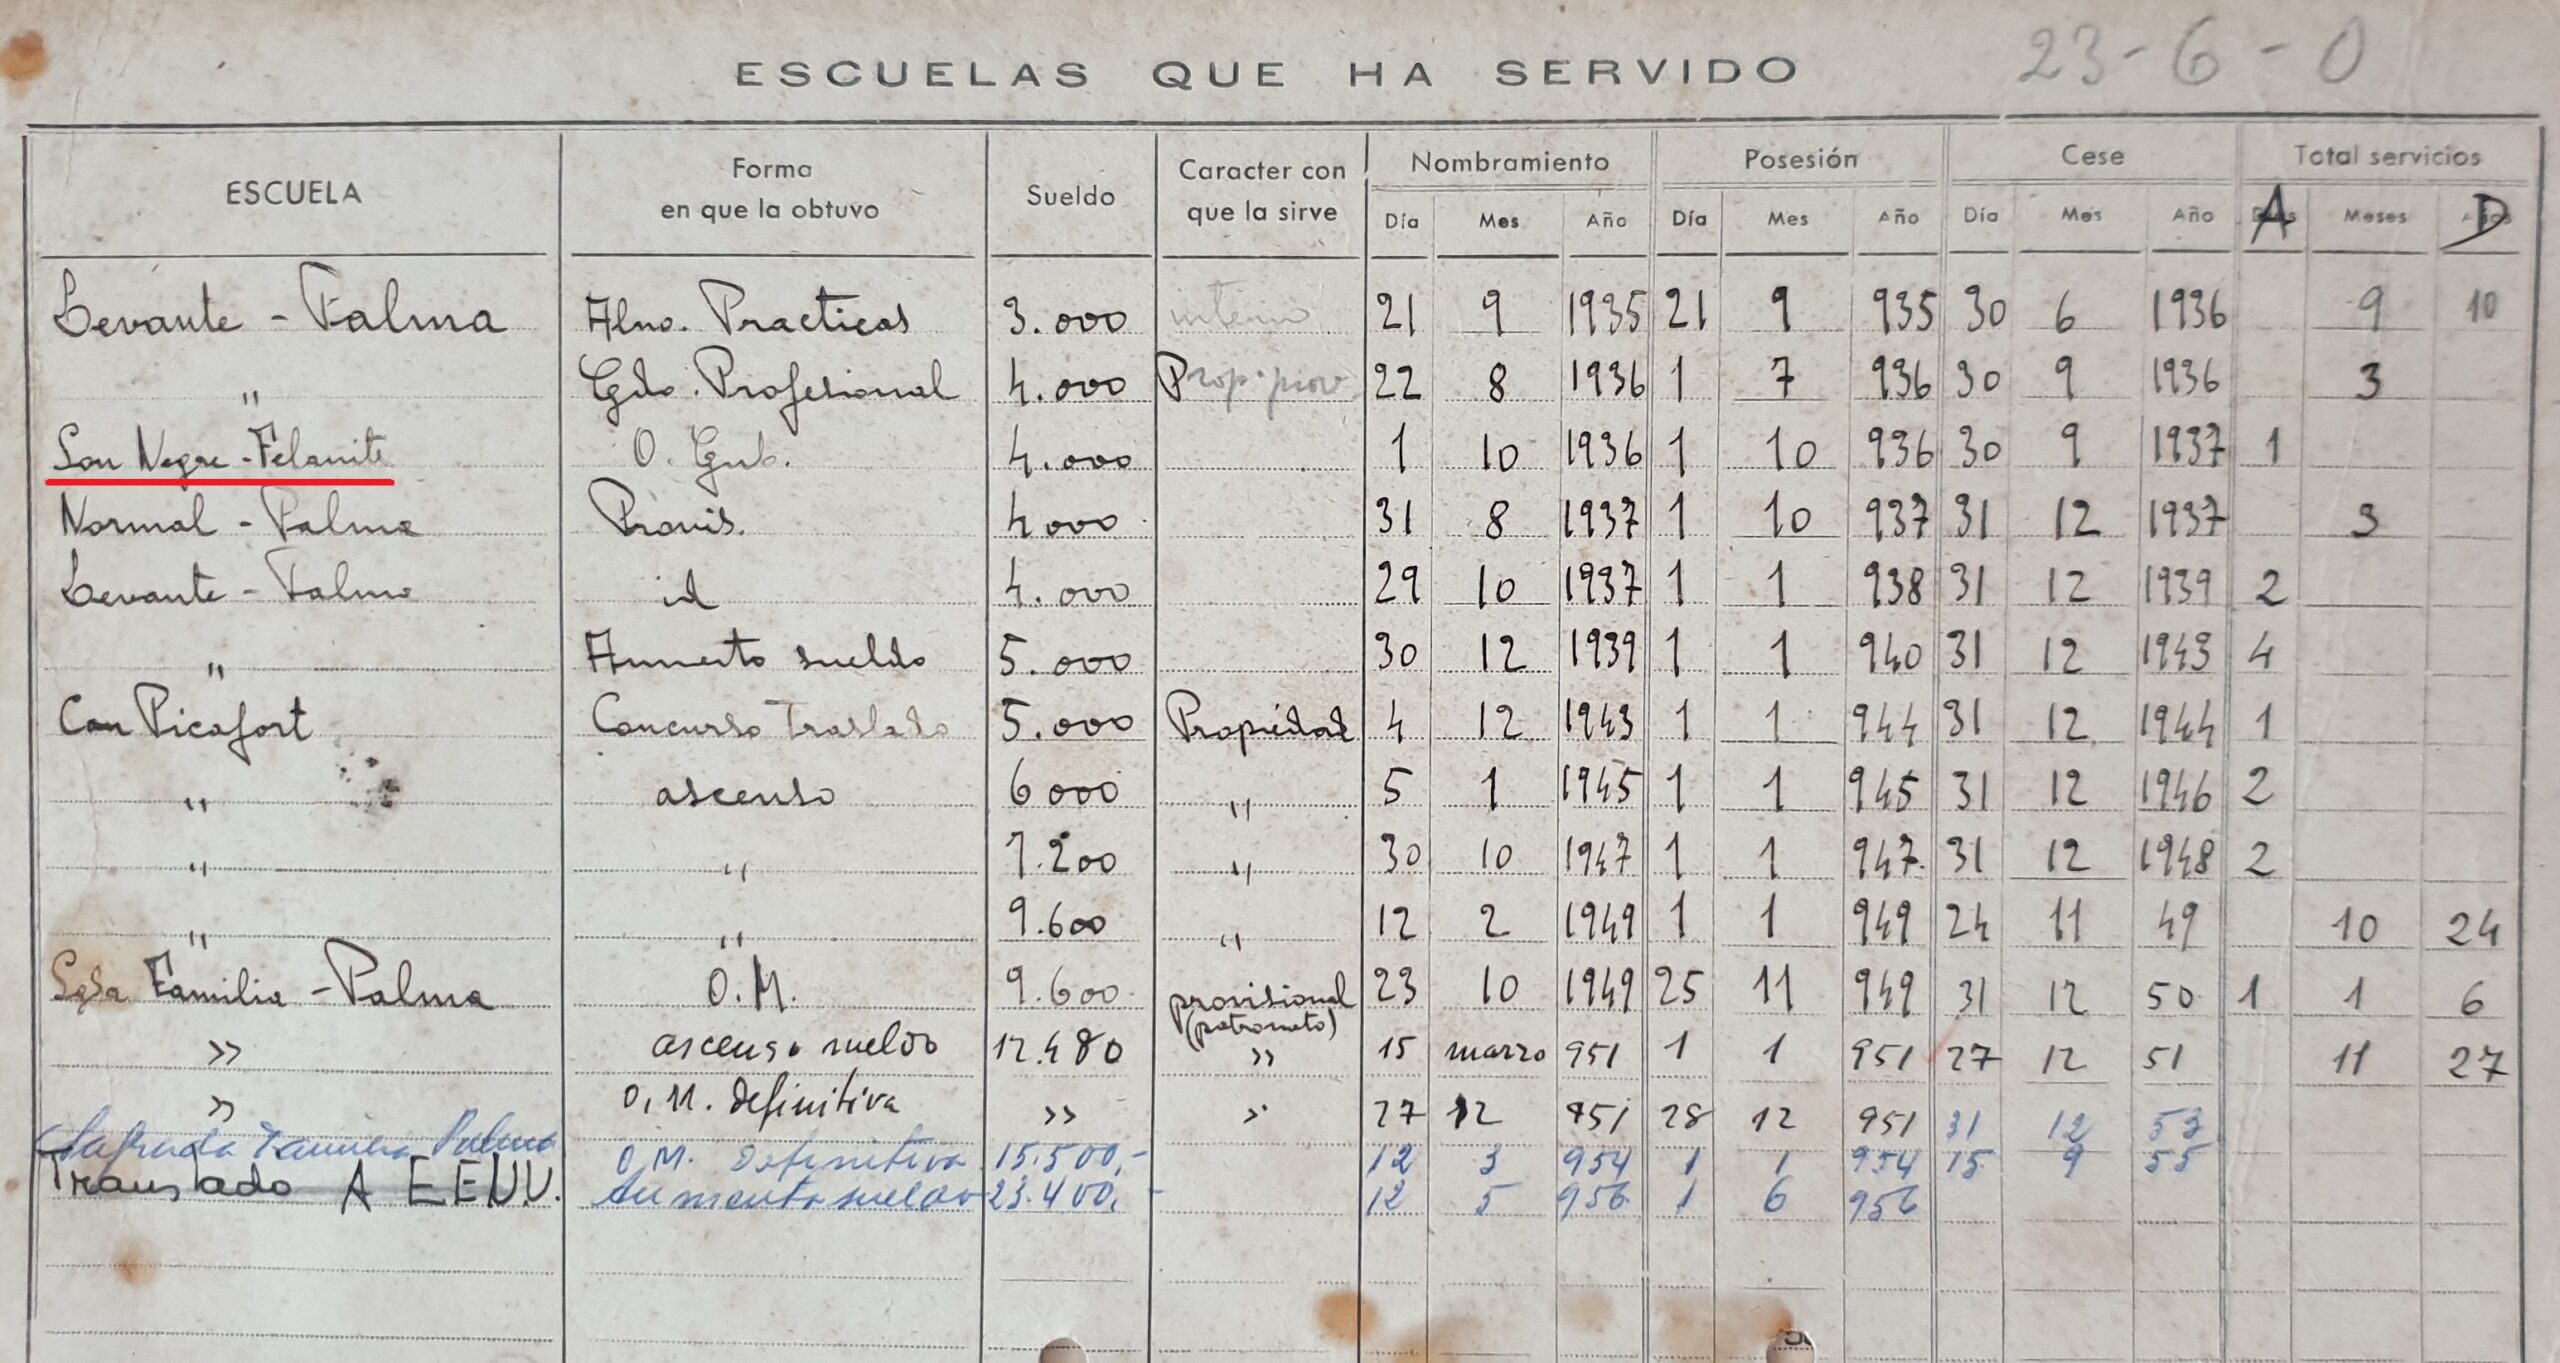 ESCUELAS QUE HA SERVIDO 23-6-0
ESCUELA Forma en que la obtuvo Sueldo Caracter con que la sirve Nombramiento Posesión Cese Total servicios
Día Mes Año Día Mes Año Día Mes Año A Meses D
Levante - Palma Alno. Practicas 3.000 interno 21 9 1935 21 9 935 30 6 1936 9 10
" Gdo. Profesional 4.000 Prop. prov 22 8 1936 1 7 936 30 9 1936 3
Son Negre - Felanitx O. Gub. 4.000 1 10 1936 1 10 936 30 9 1937 1
Normal - Palma Provis. 4000 31 8 1937 1 10 937 31 12 1937 3
Levante - Palma id 4.000 29 10 1937 1 1 938 31 12 1939 2
" Aumento sueldo 5.000 30 12 1939 1 1 940 31 12 1943 4
Can Picafort Concurso Traslado 5.000 Propiedad 4 12 1943 1 1 944 31 12 1944 1
" ascenso 6000 " 5 1 1945 1 1 945 31 12 1946 2
" " 7.200 " 30 10 1947 1 1 947 31 12 1948 2
" " 9.600 " 12 2 1949 1 1 949 24 11 49 10 24
Sgda Familia - Palma O.M. 9.600 provisional (patronato) 23 10 1949 25 11 949 31 12 50 1 1 6
" ascenso sueldo 12.480 " 15 marzo 951 1 1 951 27 12 51 11 27
" O.M. definitiva " " 27 12 951 28 12 951 31 12 53
Sagrada Familia Palma O.M. Definitiva 15.500,- 12 3 954 1 1 954 15 9 55
Translado A EE.UU. Aumento sueldo 23.400,- 12 5 956 1 6 956